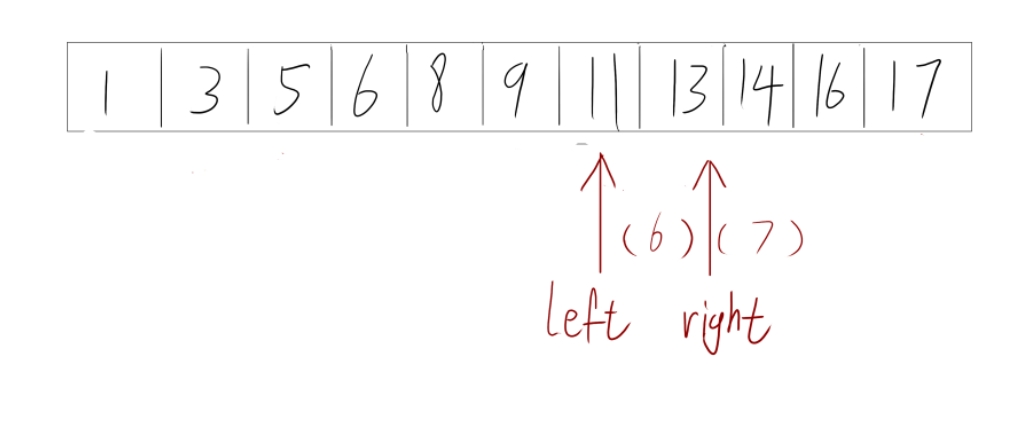 1 3 5 6 8 9 11 13 14 16 17
(6) (7)
left right